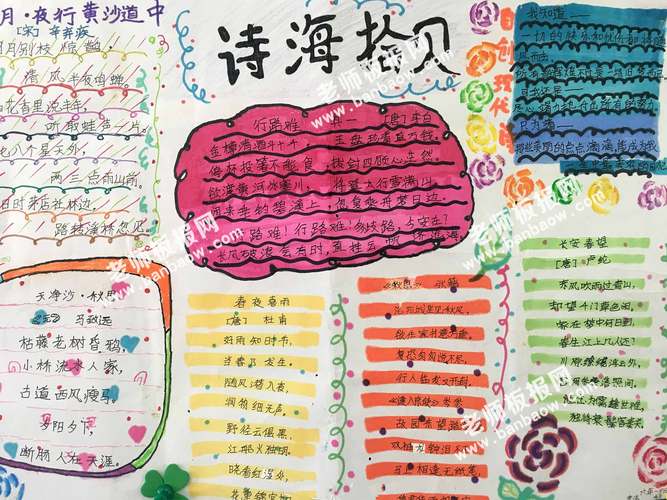 诗海拾贝
月·夜行黄沙道中
[宋] 辛弃疾
月别枝惊鹊,
清风半夜鸣蝉
花香里说丰年,
听取蛙声一片
七八个星天外,
两三点雨山前
旧时茅店社林边,
路转溪桥忽见
行路难 其一 [唐]李白
金樽清酒斗十千 玉盘珍羞直万钱
停杯投箸不能食,拔剑四顾心茫然
欲渡黄河冰塞川,将登太行雪满山
闲来垂钓碧溪上 忽复乘舟梦日边
行路难!行路难!多歧路,今安在?
长风破浪会有时,直挂云帆济沧海
现代诗
我知道——
只为着——
天净沙·秋思
马致远
枯藤老树昏鸦,
小桥流水人家,
古道西风瘦马,
夕阳西下,
断肠人在天涯。
春夜喜雨
[唐] 杜甫
好雨知时节,
当春乃发生。
随风潜入夜,
润物细无声。
野径云俱黑,
江船火独明。
晓看红湿处,
花重锦官城
《秋思》 张籍
洛阳城里见秋风,
欲作家书意万重。
复恐匆匆说不尽,
行人临发又开封。
《逢入京使》岑参
故园东望
双袖龙钟泪
马上相逢无纸笔
长安春望
[唐] 卢纶
东风吹雨过青山,
却望千门草色闲。
家在梦中何日到,
春生江上几人还?
川原缭绕浮云外,
宫阙参差落照间。
独将衰鬓客秦关。
老师板报网
www.banbaow.com